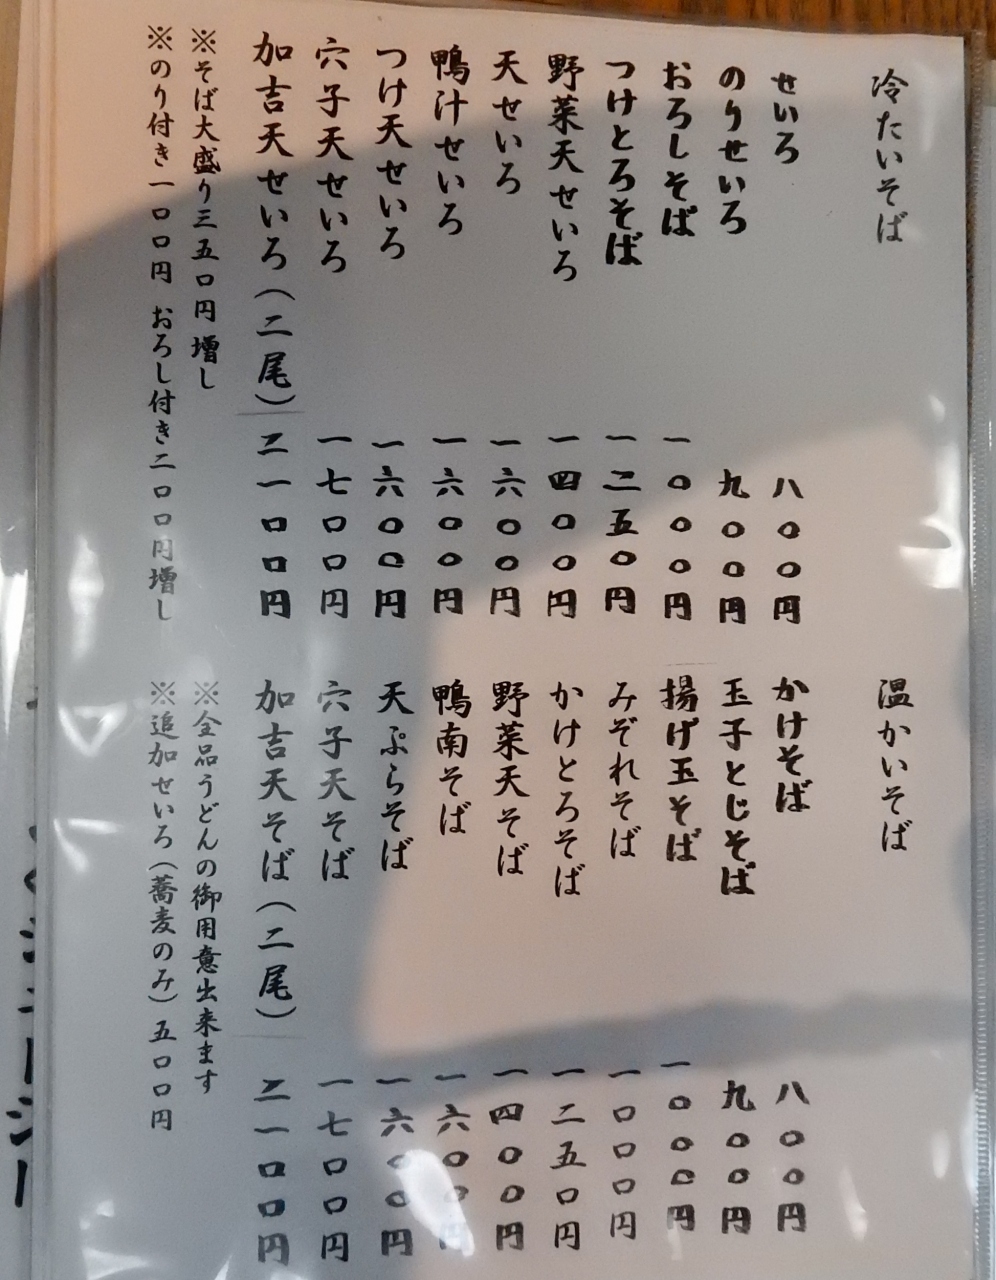 冷たいそば
せいろ 八〇〇円
のりせいろ 九〇〇円
おろしそば 一〇〇〇円
つけとろそば 一二五〇円
野菜天せいろ 一四〇〇円
天せいろ 一六〇〇円
鴨汁せいろ 一六〇〇円
つけ天せいろ 一六〇〇円
穴子天せいろ 一七〇〇円
加吉天せいろ（二尾） 二一〇〇円
※そば大盛り三五〇円増し
※のり付き一〇〇円 おろし付き二〇〇円増し
温かいそば
かけそば 八〇〇円
玉子とじそば 九〇〇円
揚げ玉そば 一〇〇〇円
みぞれそば 一〇〇〇円
かけとろそば 一二五〇円
野菜天そば 一四〇〇円
鴨南そば 一六〇〇円
天ぷらそば 一六〇〇円
穴子天そば 一七〇〇円
加吉天そば（二尾） 二一〇〇円
※全品うどんの御用意出来ます
※追加せいろ（蕎麦のみ）五〇〇円